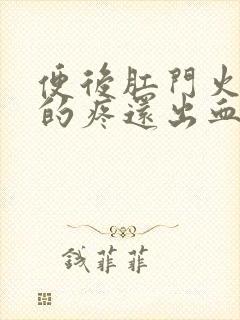 便後肛門火
的疼還出血
钱菲菲